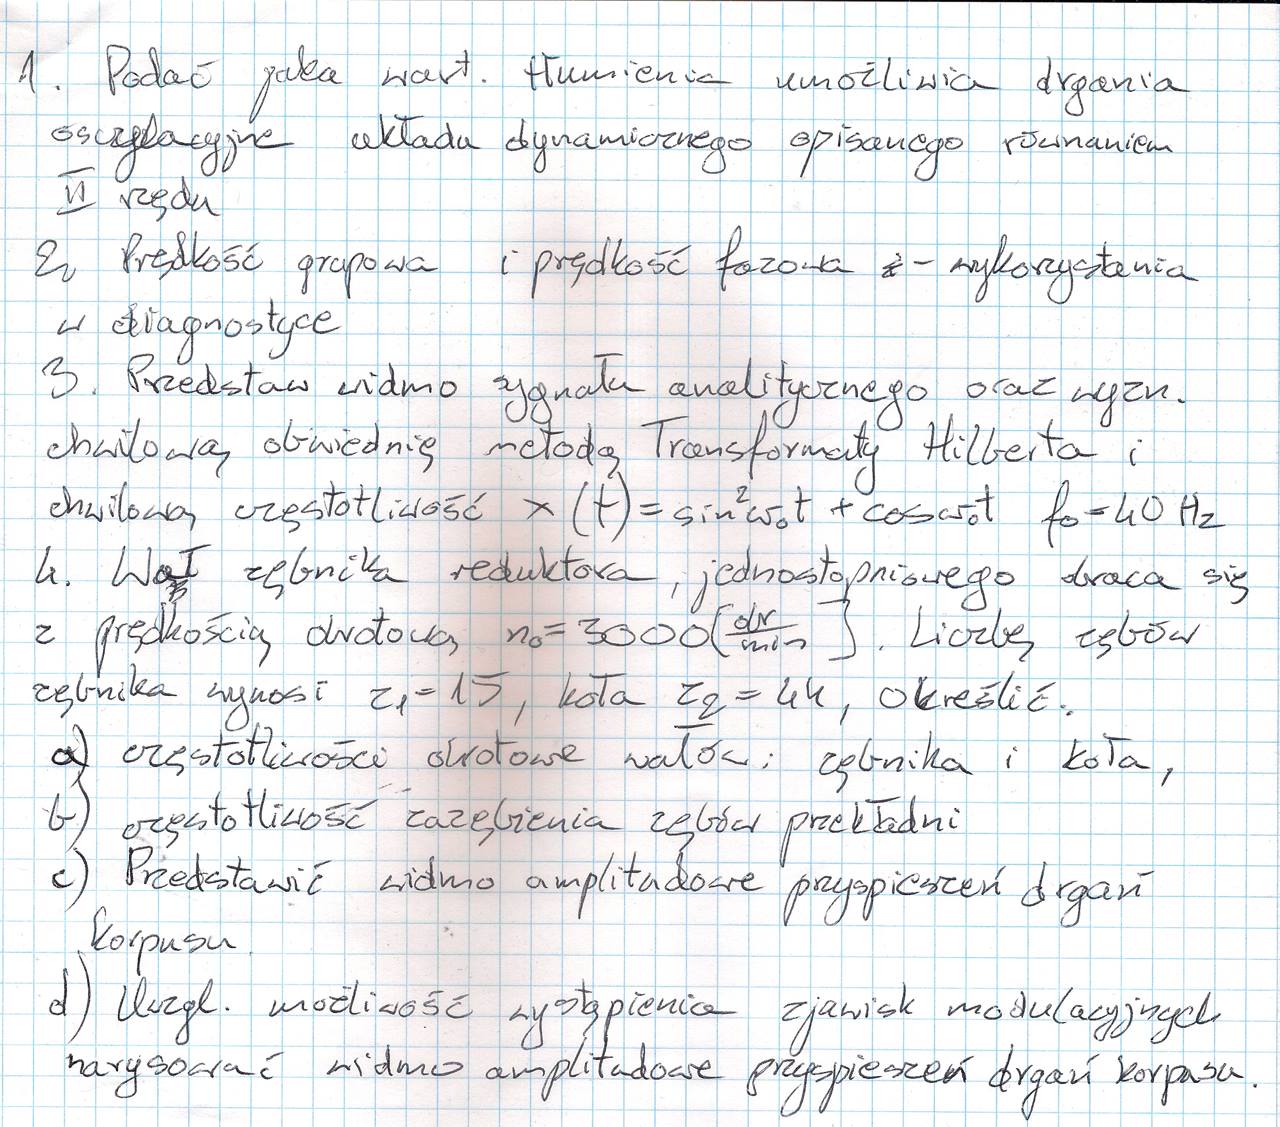 1. Podać jaka wart. tłumienia umożliwia drgania
oscylacyjne układu dynamicznego opisanego równaniem
II rzędu
2. Prędkość grupowa i prędkość fazowa - wykorzystania
w diagnostyce
3. Przedstaw widmo sygnału analitycznego oraz wyzn.
chwilową obwiednię metodą Transformaty Hilberta i
chwilową częstotliwość x(t) = sin²ω₀t + cosω₀t f₀ = 40 Hz
4. Wał zębnika reduktora, jednostopniowego obraca się
z prędkością obrotową n₀ = 3000 [obr/min]. Liczbę zębów
zębnika wynosi z₁ = 15, koła z₂ = 44, Określić:
a) częstotliwości obrotowe wałów: zębnika i koła,
b) częstotliwość zazębienia zębów przekładni
c) Przedstawić widmo amplitudowe przyspieszeń drgań
korpusu.
d) Uwzgl. możliwość wystąpienia zjawisk modulacyjnych
narysować widmo amplitudowe przyspieszeń drgań korpusu.